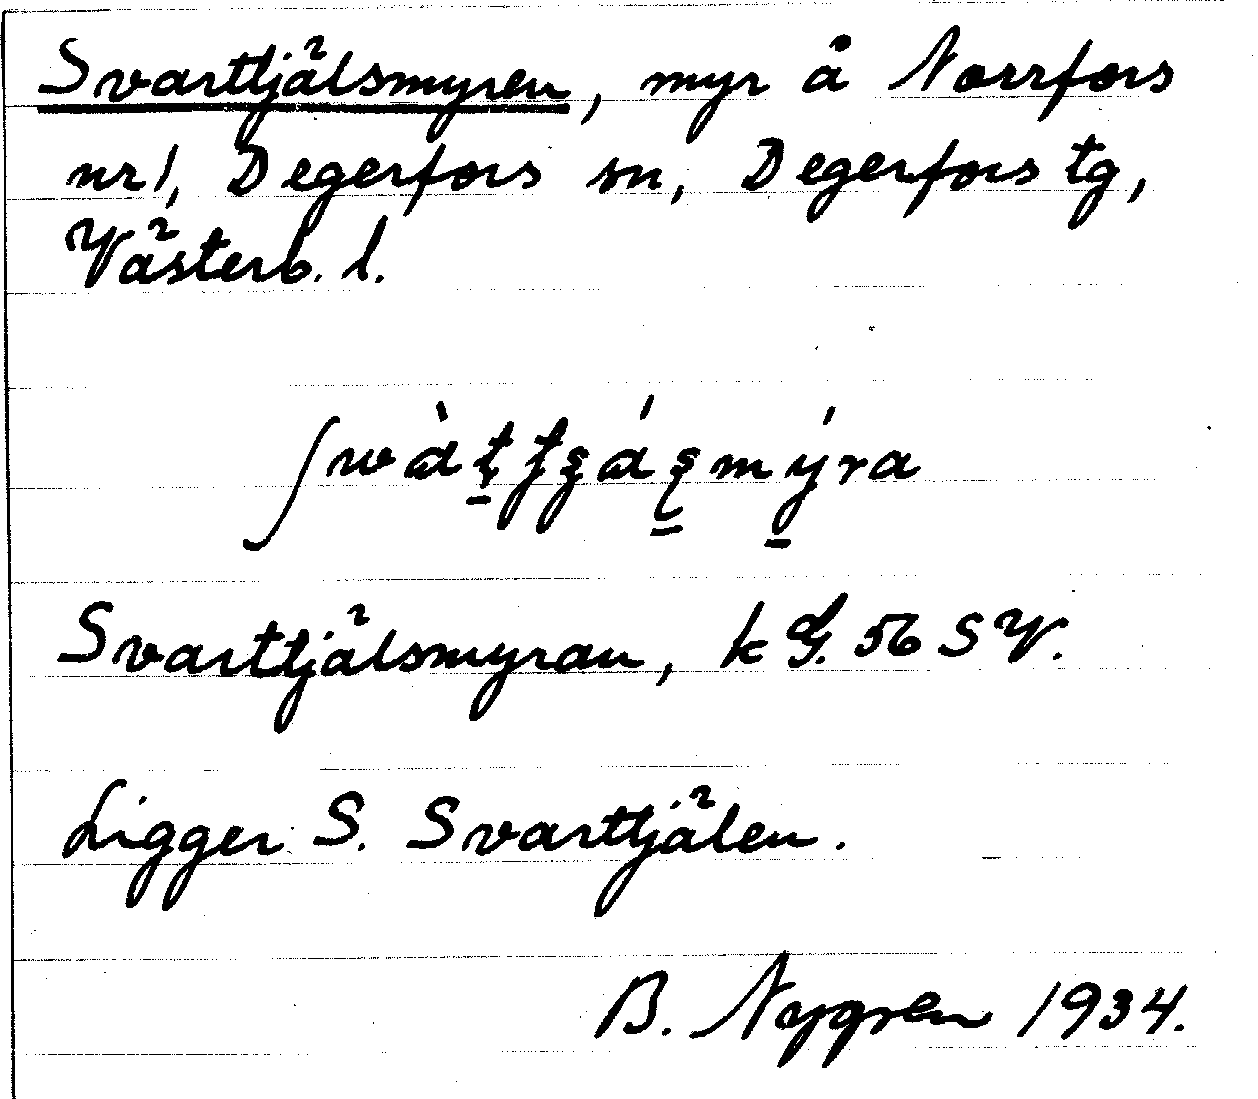 Svarttjälsmyren, myr å Norrfors
nr 1, Degerfors sn, Degerfors tg,
Västerb. l.
Svarttjälsmyran, k G. 56 SV.
Ligger S. Svarttjälen.
B. Nygren 1934.